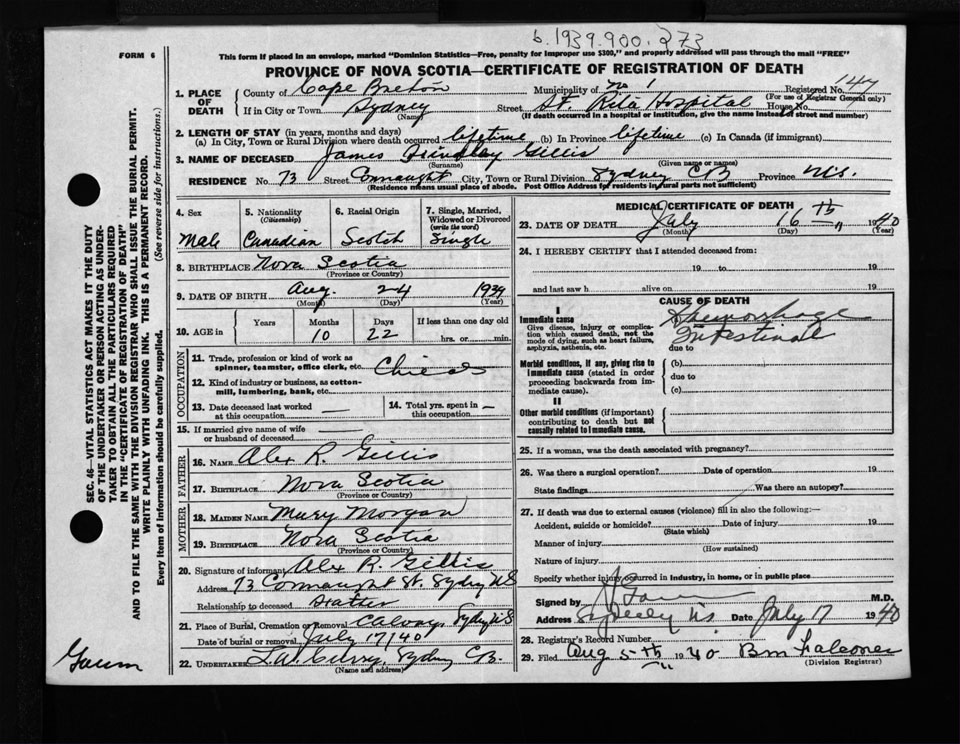 b. 1939.900.273
FORM 6
This form if placed in an envelope, marked "Dominion Statistics—Free, penalty for improper use $300," and properly addressed will pass through the mail "FREE"
PROVINCE OF NOVA SCOTIA—CERTIFICATE OF REGISTRATION OF DEATH
1. PLACE OF DEATH
County of Cape Breton Municipality of No 1 Registered No. 147
(For use of Registrar General only)
If in City or Town Sydney (Name) Street St. Rita Hospital House
(If death occurred in a hospital or institution, give the name instead of street and number)
2. LENGTH OF STAY (in years, months and days)
(a) In City, Town or Rural Division where death occurred lifetime (b) In Province lifetime (c) In Canada (if immigrant)
3. NAME OF DECEASED James Gillis
(Surname) (Given name or names)
RESIDENCE No. 73 Street Connaught City, Town or Rural Division Sydney CB Province N.S.
(Residence means usual place of abode. Post Office Address for residents in rural parts not sufficient)
4. Sex Male
5. Nationality (Citizenship) Canadian
6. Racial Origin Scotch
7. Single, Married, Widowed or Divorced (write the word) Single
8. BIRTHPLACE Nova Scotia
(Province or Country)
9. DATE OF BIRTH Aug. 24 1939
(Month) (Day) (Year)
10. AGE in Years Months 10 Days 22 If less than one day old hrs. or min.
OCCUPATION
11. Trade, profession or kind of work as spinner, teamster, office clerk, etc. Child
12. Kind of industry or business, as cotton-mill, lumbering, bank, etc.
13. Date deceased last worked at this occupation —
14. Total yrs. spent in this occupation —
15. If married give name of wife or husband of deceased —
FATHER
16. NAME Alex R. Gillis
17. BIRTHPLACE Nova Scotia
(Province or Country)
MOTHER
18. MAIDEN NAME Mary Morgan
19. BIRTHPLACE Nova Scotia
(Province or Country)
20. Signature of informant Alex R. Gillis
Address 73 Connaught St. Sydney NS
Relationship to deceased Father
21. Place of Burial, Cremation or Removal Calvary Sydney NS
Date of burial or removal July 17/40
22. UNDERTAKER L.W. Curry, Sydney CB.
(Name and address)
MEDICAL CERTIFICATE OF DEATH
23. DATE OF DEATH July 16th 1940
(Month) (Day) (Year)
24. I HEREBY CERTIFY that I attended deceased from:
19 to 19
and last saw h alive on 19
CAUSE OF DEATH
I
Immediate cause
Give disease, injury or complication which caused death, not the mode of dying, such as heart failure, asphyxia, asthenia, etc.
(a) Haemorrhage
Intestinal
due to
Morbid conditions, if any, giving rise to immediate cause (stated in order proceeding backwards from immediate cause).
(b)
due to
(c)
II
Other morbid conditions (if important) contributing to death but not causally related to immediate cause.
25. If a woman, was the death associated with pregnancy?
26. Was there a surgical operation? Date of operation 19
State findings Was there an autopsy?
27. If death was due to external causes (violence) fill in also the following:—
Accident, suicide or homicide? Date of injury 19
(State which)
Manner of injury
(How sustained)
Nature of injury
Specify whether injury occurred in industry, in home, or in public place
Signed by M.D.
Address Sydney NS. Date July 17 1940
28. Registrar's Record Number
29. Filed Aug 5th 1940 BM Falconer
(Division Registrar)
SEC. 46—VITAL STATISTICS ACT MAKES IT THE DUTY
OF THE UNDERTAKER OR PERSON ACTING AS UNDER-
TAKER TO OBTAIN ALL THE PARTICULARS REQUIRED
IN THE "CERTIFICATE OF REGISTRATION OF DEATH"
AND TO FILE THE SAME WITH THE DIVISION REGISTRAR WHO SHALL ISSUE THE BURIAL PERMIT.
WRITE PLAINLY WITH UNFADING INK. THIS IS A PERMANENT RECORD.
Every Item of Information should be carefully supplied. (See reverse side for instructions.)